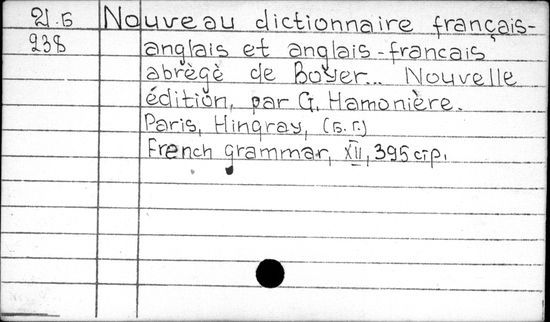 21.Б Nouveau dictionnaire français-
238 anglais et anglais-francais
abrègè de Boyer... Nouvelle
édition, par G. Hamonière.
Paris, Hingray, (б.г.)
French grammar, XII, 395 стр.